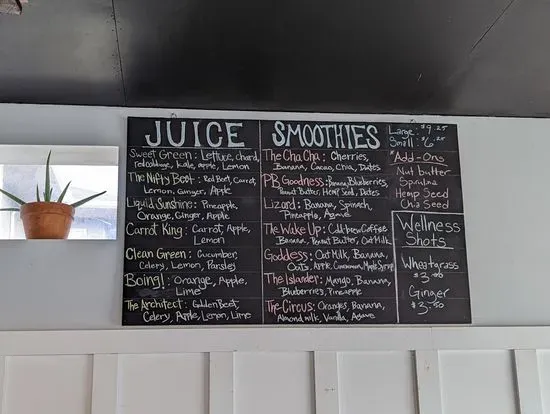 JUICE
Sweet Green: Lettuce, chard,
red cabbage, kale, apple, Lemon
The Nifty Beet: Red Beet, Carrot,
Lemon, Ginger, Apple
Liquid Sunshine: Pineapple,
Orange, Ginger, Apple
Carrot King: Carrot, Apple,
Lemon
Clean Green: Cucumber,
Celery, Lemon, Parsley
Boing!: Orange, Apple,
Lime
The Architect: Golden Beet,
Celery, Apple, Lemon, Lime
SMOOTHIES
The Cha Cha: Cherries,
Banana, Cacao, Chia, Dates
PB Goodness: Banana, Blueberries,
Peanut Butter, Hemp Seed, Dates
Lizard: Banana, Spinach,
Pineapple, Agave
The Wake Up: Cold brew Coffee
Banana, Peanut Butter, Oat Milk
Goddess: Oat Milk, Banana,
Oats, Apple, Cinnamon, Maple Syrup
The Islander: Mango, Banana,
Blueberries, Pineapple
The Circus: Oranges, Banana,
Almond milk, Vanilla, Agave
Large: $9.25
Small: $6.25
Add-Ons
Nut butter
Spirulina
Hemp Seed
Chia Seed
Wellness
Shots
Wheatgrass
$3.00
Ginger
$3.50